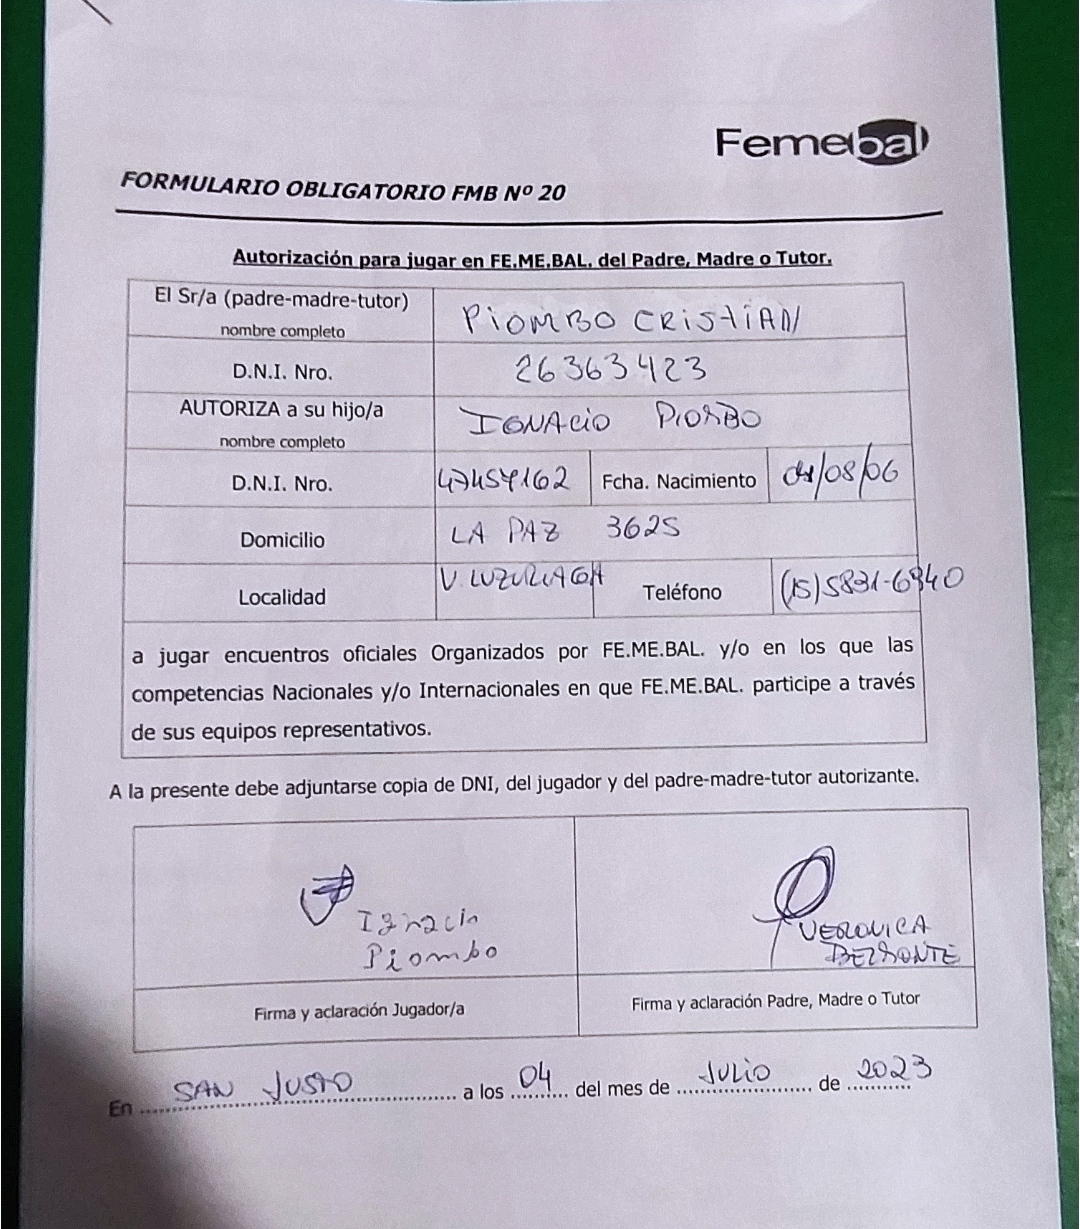 Femebal
FORMULARIO OBLIGATORIO FMB Nº 20
Autorización para jugar en FE.ME.BAL. del Padre, Madre o Tutor.
El Sr/a (padre-madre-tutor)
nombre completo
PIOMBO CRISTIAN
D.N.I. Nro.
26363423
AUTORIZA a su hijo/a
nombre completo
IGNACIO PIOMBO
D.N.I. Nro.
47457162 Fcha. Nacimiento /08/06
Domicilio
LA PAZ 3625
Localidad
V. LUZURIAGA Teléfono (15)5831-6940
a jugar encuentros oficiales Organizados por FE.ME.BAL. y/o en los que las
competencias Nacionales y/o Internacionales en que FE.ME.BAL. participe a través
de sus equipos representativos.
A la presente debe adjuntarse copia de DNI, del jugador y del padre-madre-tutor autorizante.
Ignacio
Piombo
VERONICA
BELMONTE
Firma y aclaración Jugador/a
Firma y aclaración Padre, Madre o Tutor
En SAN JUSTO a los 04 del mes de JULIO de 2023